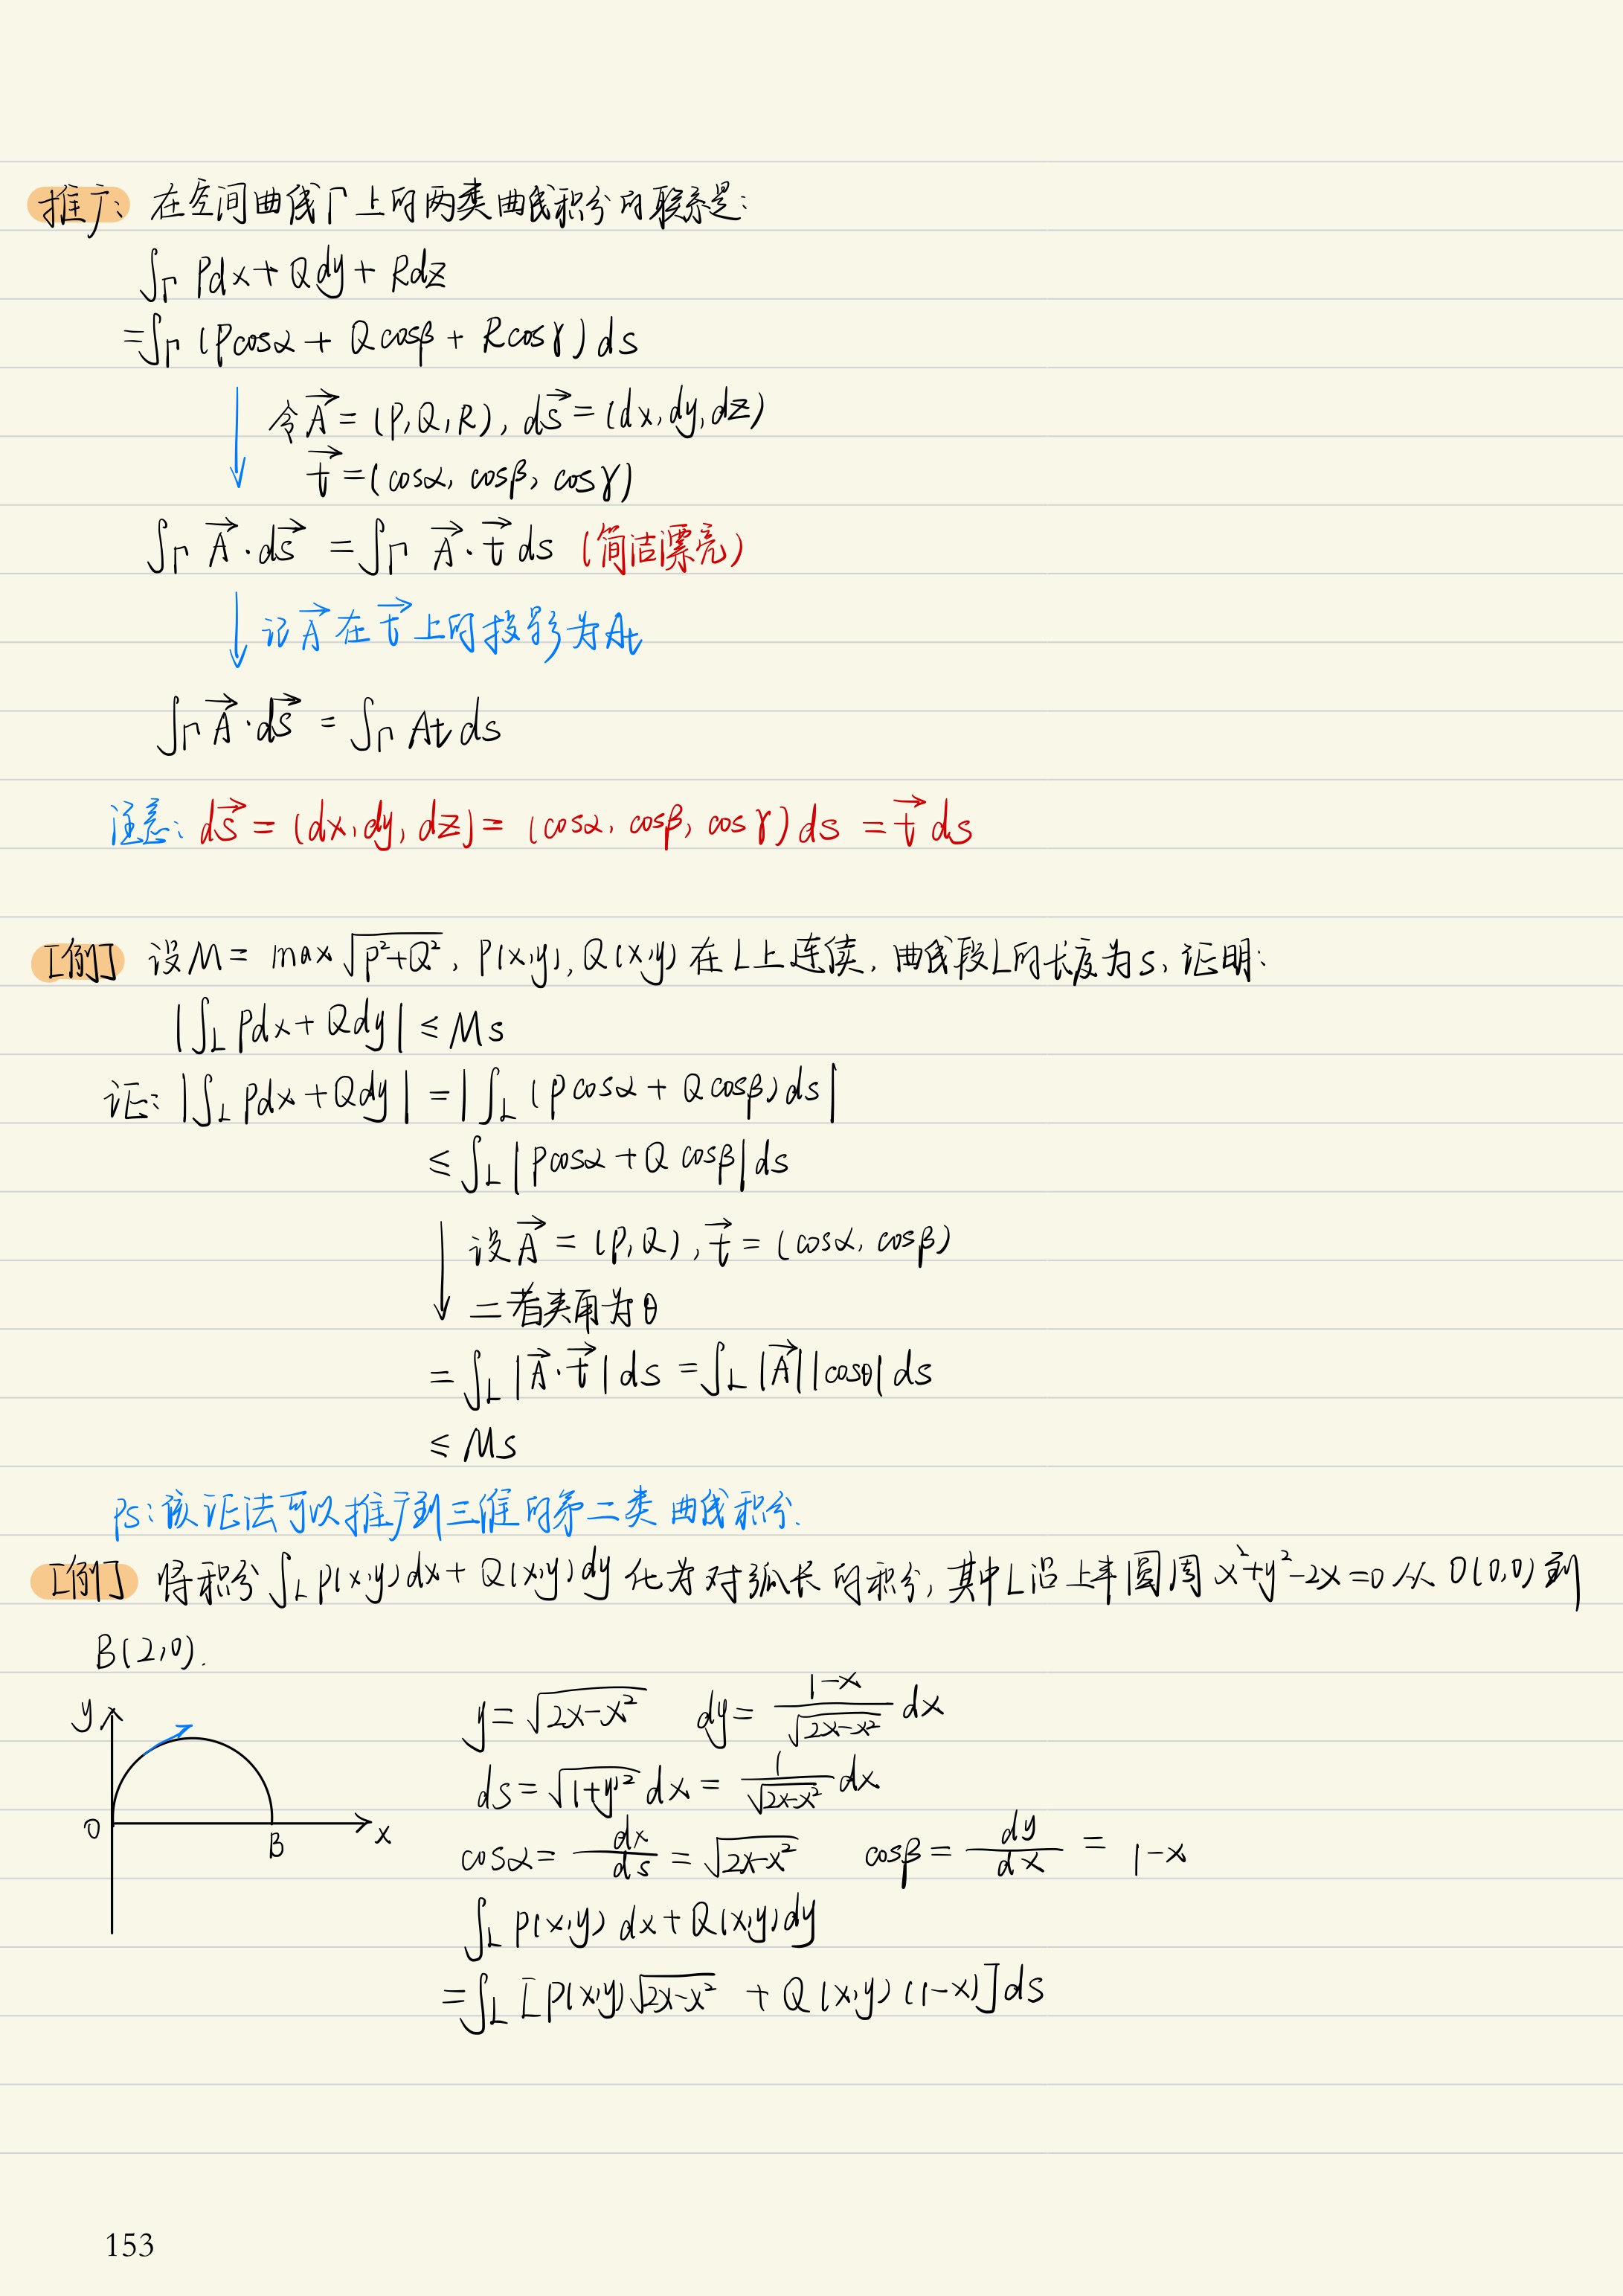 推广: 在空间曲线Γ上的两类曲线积分的联系是:
∫Γ Pdx+Qdy+Rdz
=∫Γ (Pcosα+Qcosβ+Rcosγ)ds
令A⃗=(P,Q,R), ds⃗=(dx,dy,dz)
t⃗=(cosα, cosβ, cosγ)
∫Γ A⃗·ds⃗ =∫Γ A⃗·t⃗ ds (简洁漂亮)
记A⃗在t⃗上的投影为At
∫Γ A⃗·ds⃗ = ∫Γ At ds
注意: ds⃗=(dx,dy,dz)=(cosα, cosβ, cosγ)ds=t⃗ds
[例] 设M=max√(P²+Q²), P(x,y), Q(x,y)在L上连续, 曲线段L的长度为s, 证明:
|∫L Pdx+Qdy| ≤ Ms
证: |∫L Pdx+Qdy| =|∫L (Pcosα+Qcosβ)ds|
≤∫L |Pcosα+Qcosβ|ds
设A⃗=(P,Q), t⃗=(cosα, cosβ)
二者夹角为θ
=∫L |A⃗·t⃗|ds =∫L |A⃗||cosθ|ds
≤ Ms
ps:该证法可以推广到三维的第二类曲线积分.
[例] 将积分∫L P(x,y)dx+Q(x,y)dy化为对弧长的积分, 其中L沿上半圆周x²+y²-2x=0从O(0,0)到
B(2,0).
y=√(2x-x²) dy=(1-x)/√(2x-x²) dx
ds=√(1+y'²) dx=1/√(2x-x²) dx
cosα=dx/ds=√(2x-x²) cosβ=dy/dx=1-x
∫L P(x,y)dx+Q(x,y)dy
=∫L [P(x,y)√(2x-x²) +Q(x,y)(1-x)]ds
y
O
B
x
153